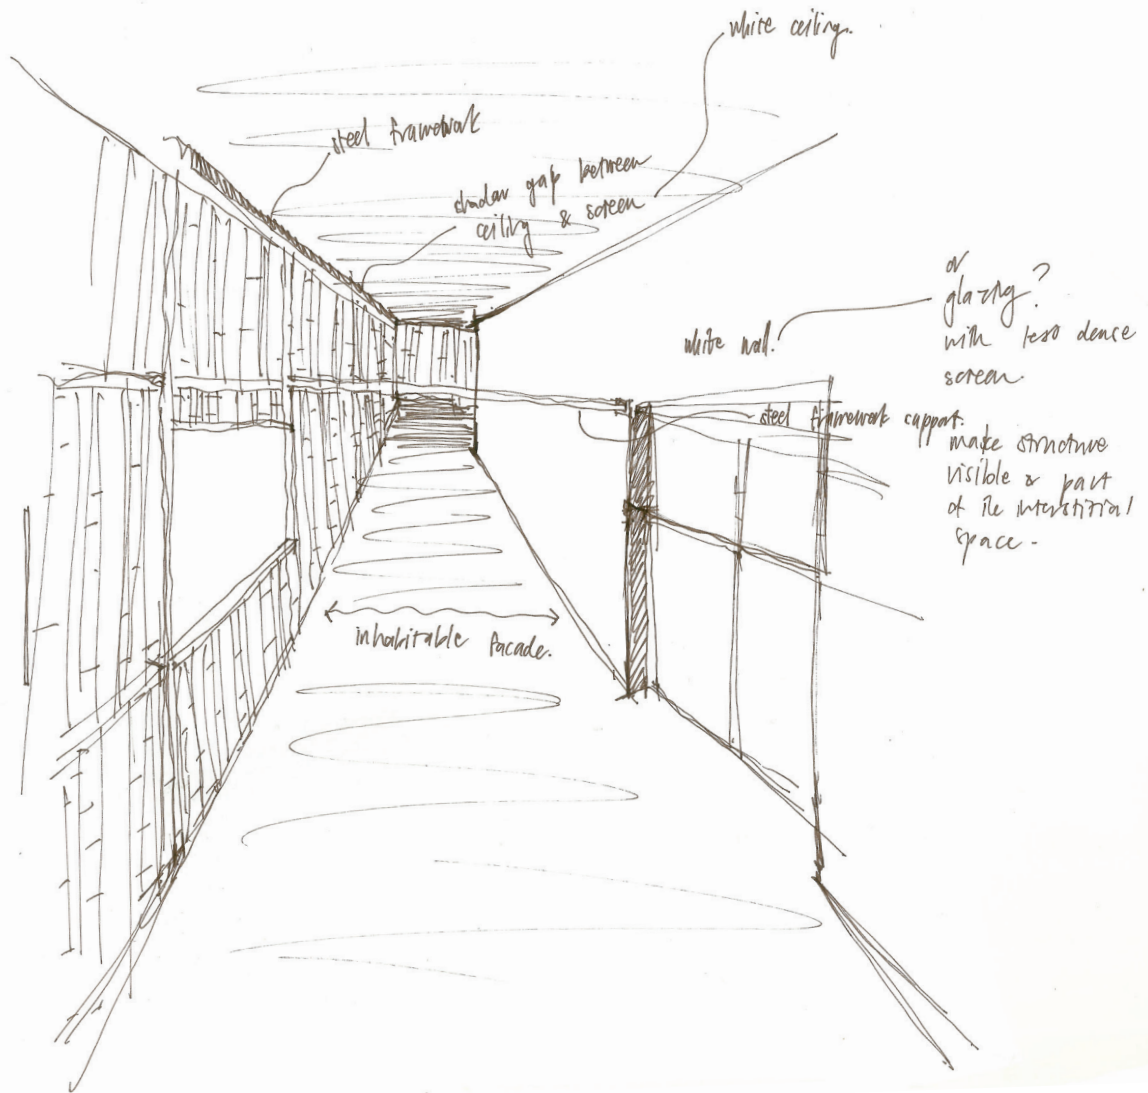 white ceiling.
steel framework
shadow gap between
ceiling & screen
or
glazing?
with less dence
screen.
white wall.
steel framework support.
make structure
visible & part
of the interstitial
space -
inhabitable facade.